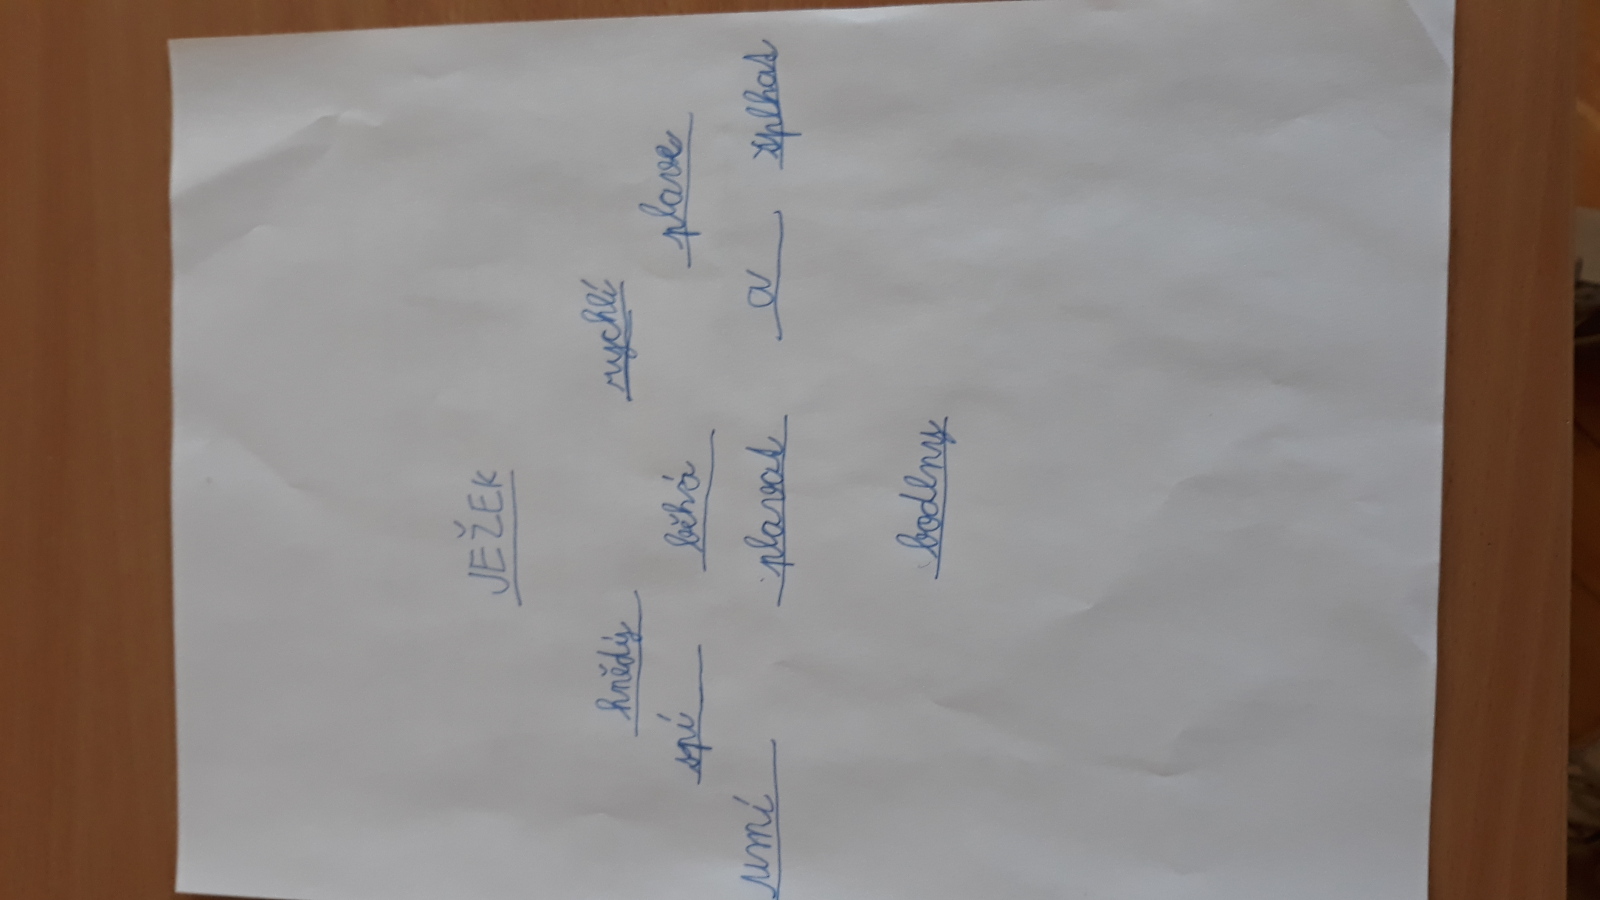 JEŽEK
hnědý rychlí
spí běhá plave
umí plavat a splhat
bodlny